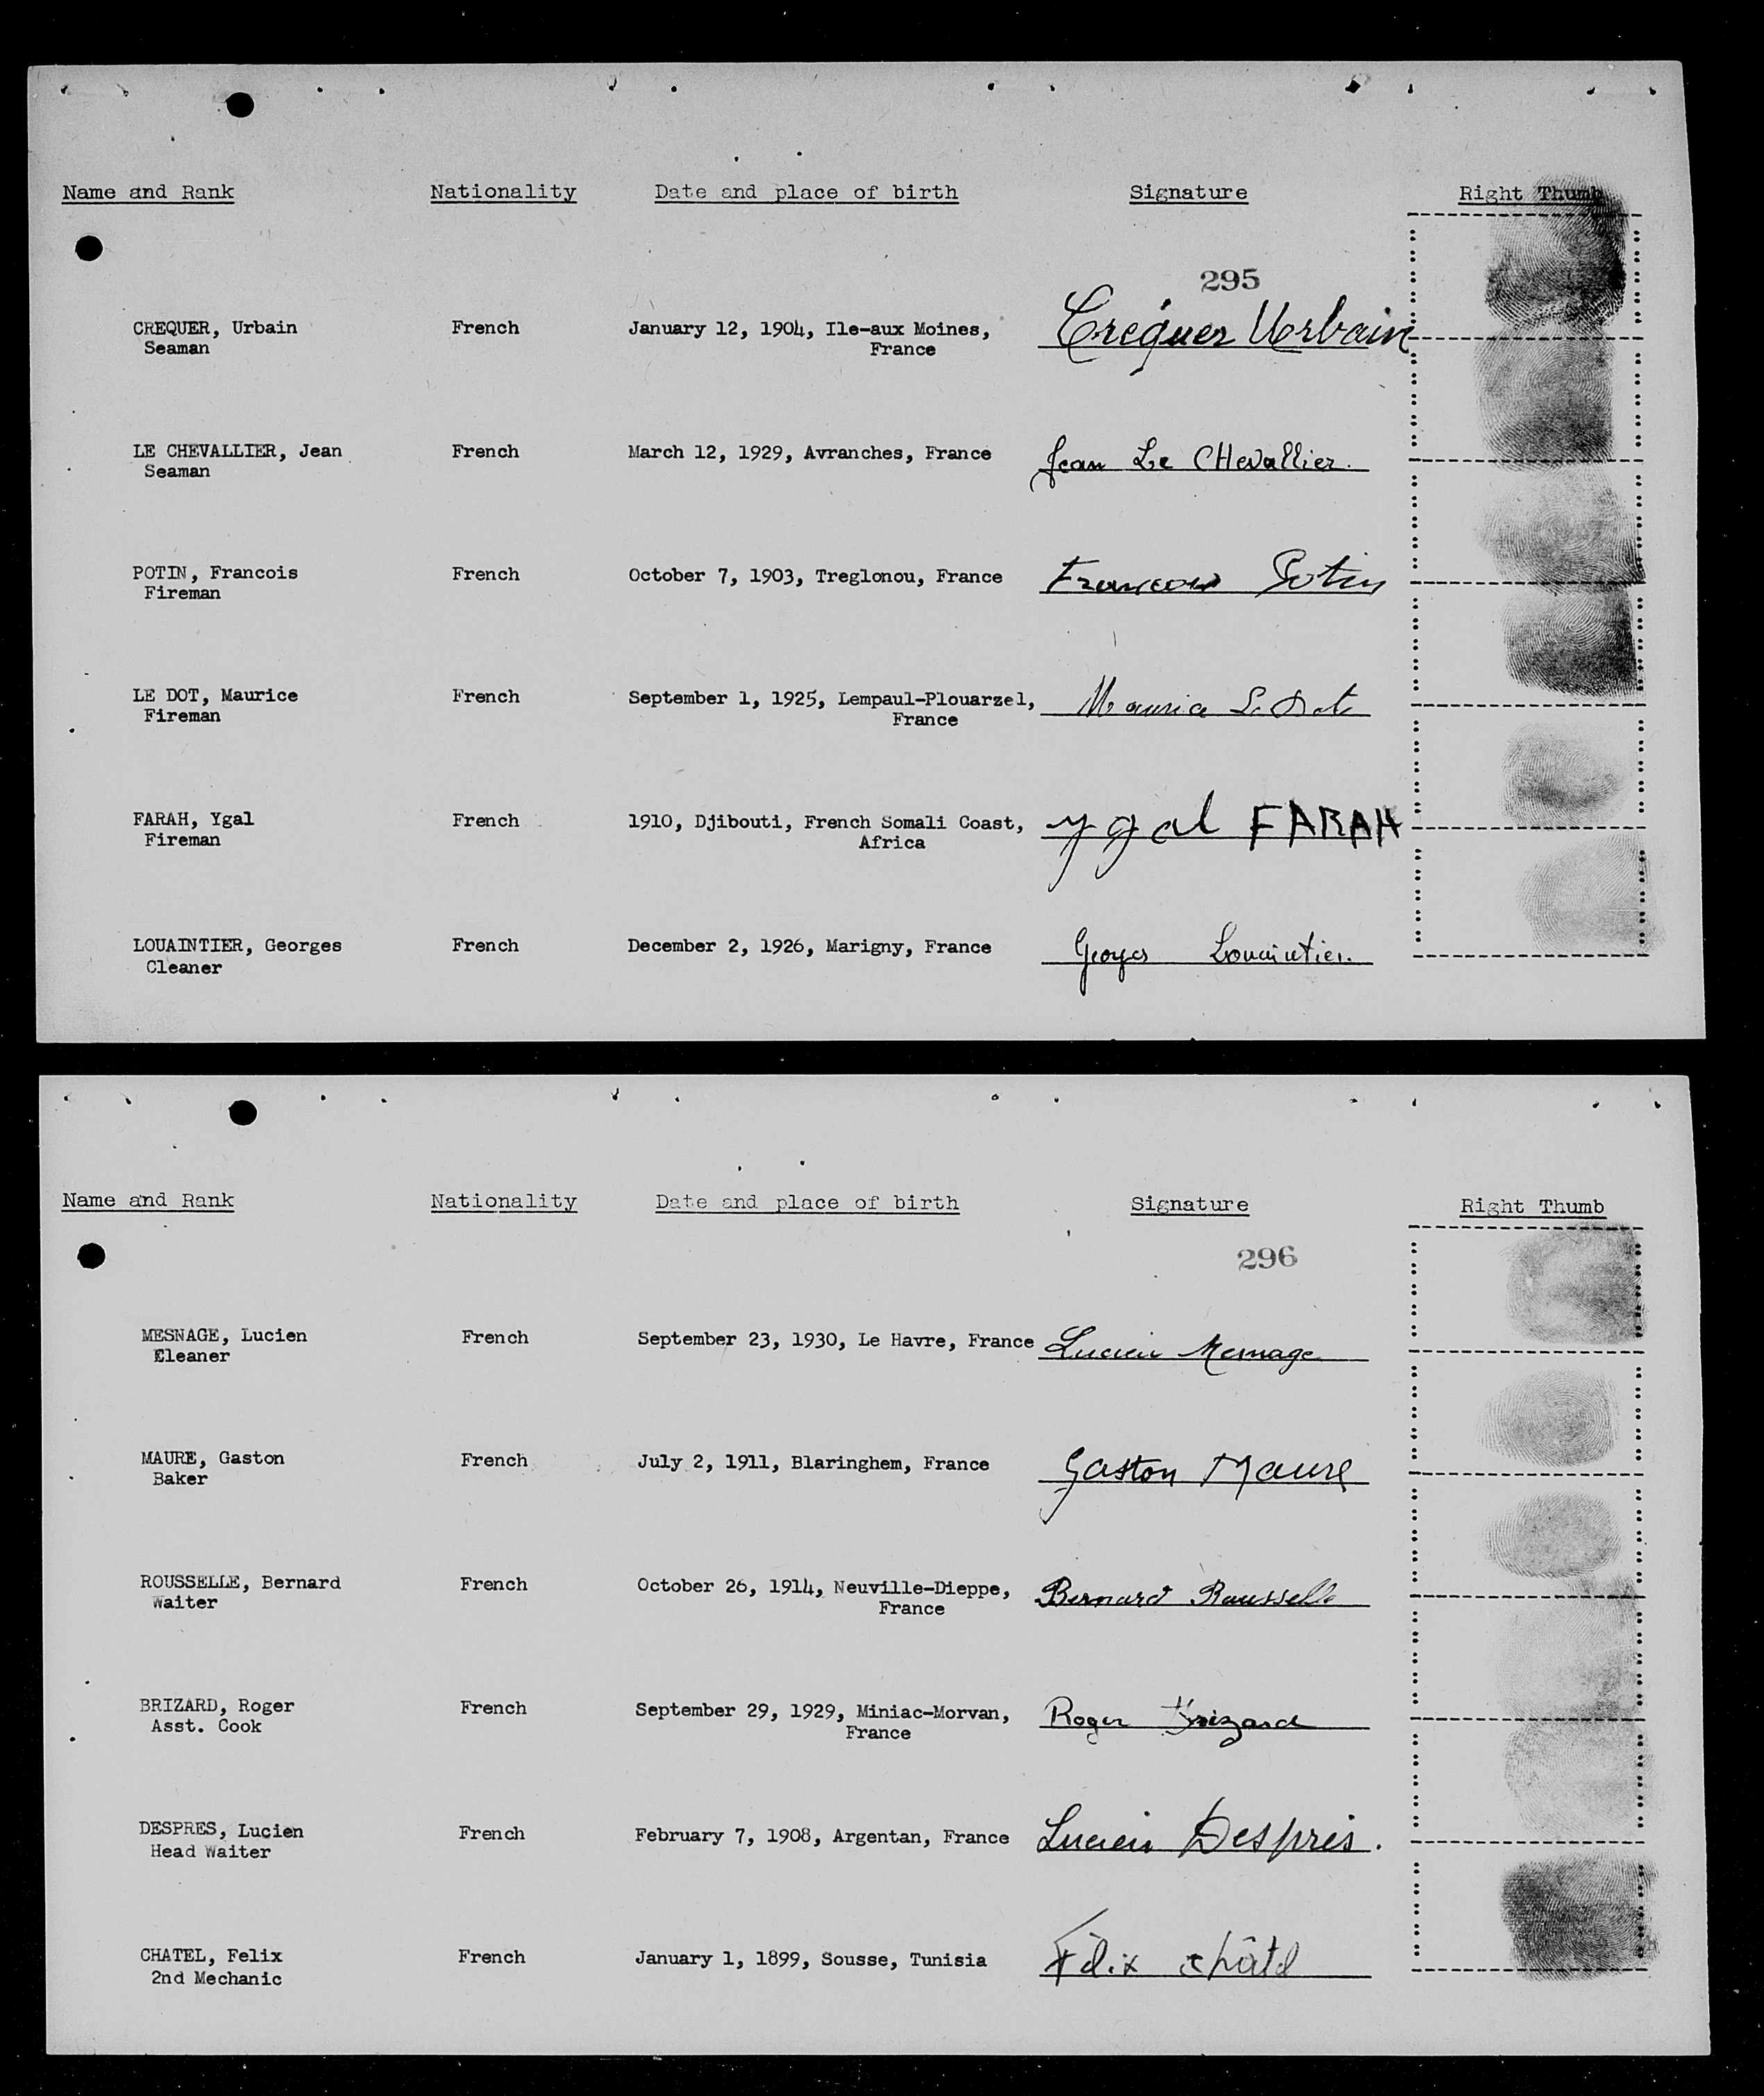 Name and Rank Nationality Date and place of birth Signature Right Thumb
295
CREQUER, Urbain French January 12, 1904, Ile-aux Moines, Créquer Urbain
Seaman France
LE CHEVALLIER, Jean French March 12, 1929, Avranches, France Jean Le CHevallier.
Seaman
POTIN, Francois French October 7, 1903, Treglonou, France Francois Potin
Fireman
LE DOT, Maurice French September 1, 1925, Lempaul-Plouarzel, Maurice Le Dot
Fireman France
FARAH, Ygal French 1910, Djibouti, French Somali Coast, ygal FARAH
Fireman Africa
LOUAINTIER, Georges French December 2, 1926, Marigny, France Georges Louaintier.
Cleaner
Name and Rank Nationality Date and place of birth Signature Right Thumb
296
MESNAGE, Lucien French September 23, 1930, Le Havre, France Lucien Mesnage
Cleaner
MAURE, Gaston French July 2, 1911, Blaringhem, France Gaston Maure
Baker
ROUSSELLE, Bernard French October 26, 1914, Neuville-Dieppe, Bernard Rousselle
Waiter France
BRIZARD, Roger French September 29, 1929, Miniac-Morvan, Roger Brizard
Asst. Cook France
DESPRES, Lucien French February 7, 1908, Argentan, France Lucien Després.
Head Waiter
CHATEL, Felix French January 1, 1899, Sousse, Tunisia Félix châtel
2nd Mechanic